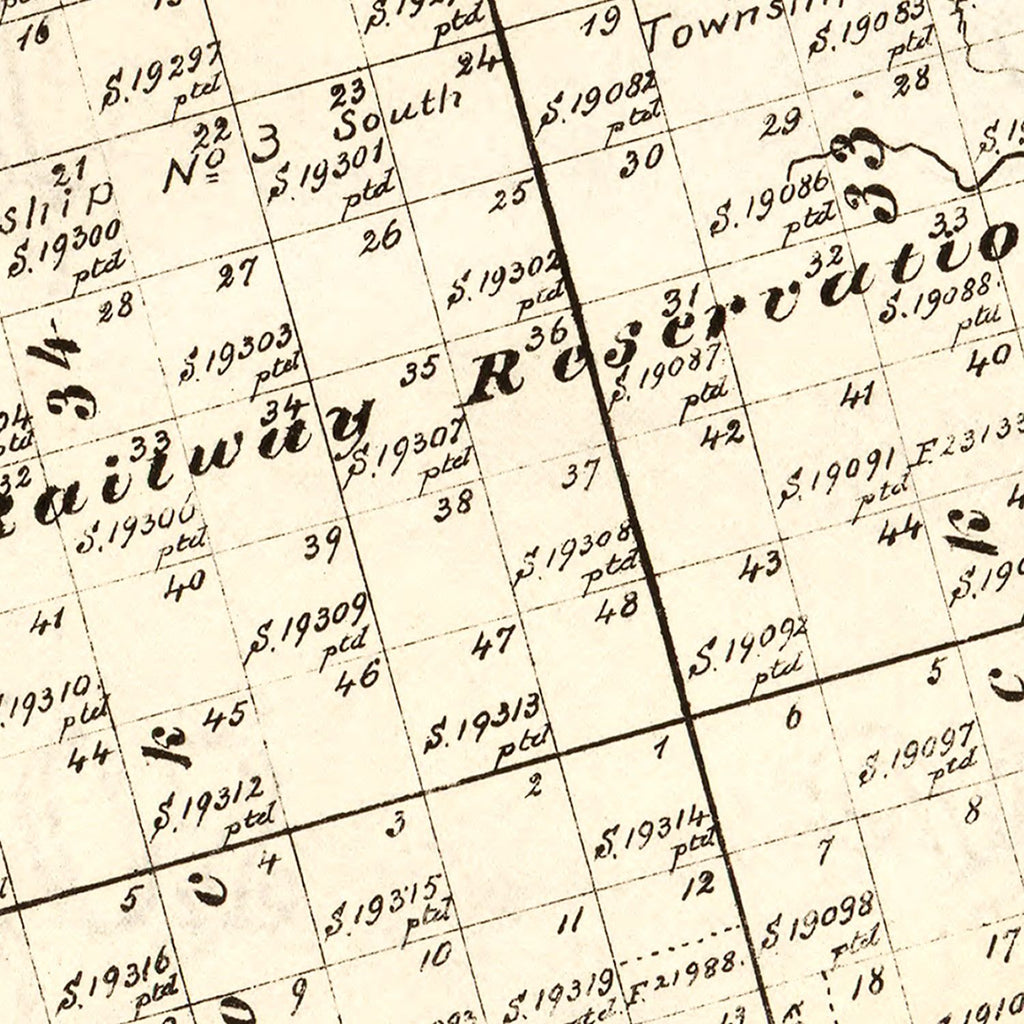 16
S.19297
ptd
ptd
24
19
S.19083
ptd
23
South
22
No 3
S.19082
ptd
29
28
33
21
S.19301
ptd
25
30
S.19086
ptd
S.19300
ptd
26
S.19302
ptd
32
33
28
27
36
31
S.19088
ptd
34
S.19303
ptd
35
Railway Reservatio
S.19087
ptd
40
32
33
34
S.19307
ptd
42
41
37
S.19091
ptd
F.23133
38
44
39
S.19308
ptd
43
40
48
41
S.19309
ptd
47
S.19092
ptd
S.19310
ptd
46
5
C
45
S.19313
ptd
6
44
1
S.19097
ptd
S.19312
ptd
2
3
S.19314
ptd
8
4
7
5
C
S.19315
ptd
12
S.19098
ptd
S.19316
ptd
11
10
17
9
S.19319
ptd
F.21988.
18